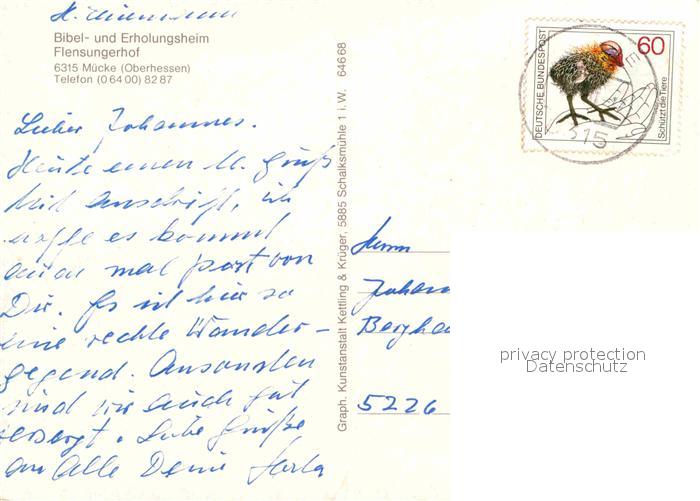 Bibel- und Erholungsheim
Flensungerhof
6315 Mücke (Oberhessen)
Telefon (0 64 00) 82 87
Lieber Johannes.
Heute einen kl. Gruß
mit Anschrift, ich
hoffe es kommt
auch mal post von
Dir. Es ist hier so
eine rechte Wander-
gegend. Ansonsten
sind wir auch gut
versorgt. Liebe Grüße
an Alle Deine
Graph. Kunstanstalt Kettling & Krüger, 5885 Schalksmühle 1 i.W. 64668
DEUTSCHE BUNDESPOST
60
Schützt die Tiere
6315
Herrn
Johann
Bergha
5226
privacy protection
Datenschutz